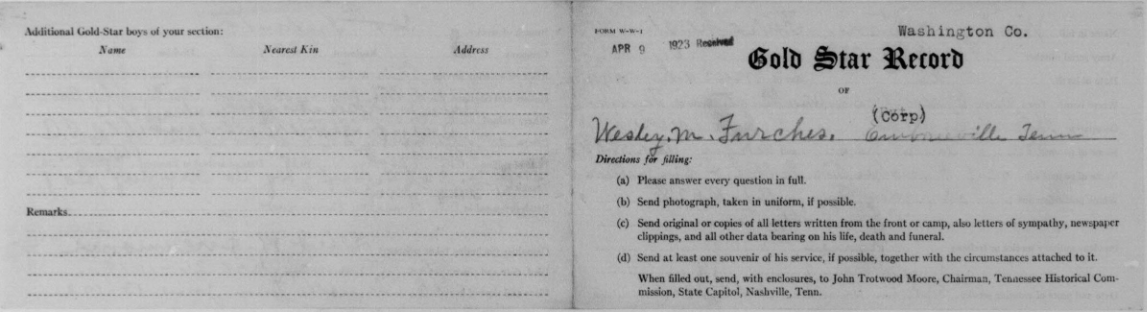 Additional Gold-Star boys of your section:
Name Nearest Kin Address
Remarks
FORM W-W-1
Washington Co.
APR 9 1923 Received
Gold Star Record
OF
(Corp)
Wesley. M. Furches. Tenn
Directions for filling:
(a) Please answer every question in full.
(b) Send photograph, taken in uniform, if possible.
(c) Send original or copies of all letters written from the front or camp, also letters of sympathy, newspaper
clippings, and all other data bearing on his life, death and funeral.
(d) Send at least one souvenir of his service, if possible, together with the circumstances attached to it.
When filled out, send, with enclosures, to John Trotwood Moore, Chairman, Tennessee Historical Com-
mission, State Capitol, Nashville, Tenn.